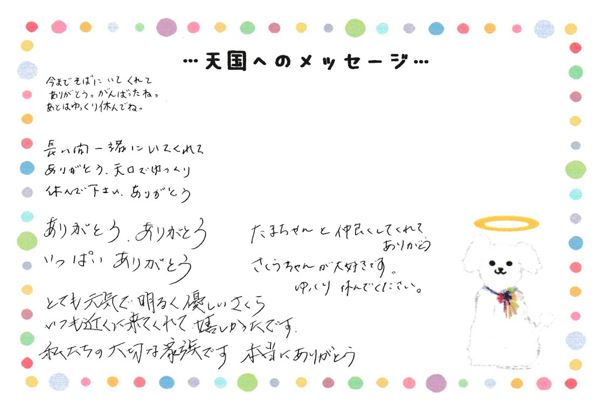 …天国へのメッセージ…
今までそばにいてくれて
ありがとう。がんばったね。
あとはゆっくり休んでね。
長い間一緒にいてくれて
ありがとう、天口でゆっくり
休んで下さい、ありがとう
ありがとう、ありがとう
いっぱい ありがとう
たまちゃんと仲良くしてくれて
ありがとう
さくらちゃんが大好きです。
ゆっくり休んでください。
とても元気で明るく優しいさくら
いつも近くに来てくれて嬉しかったです。
私たちの大切な家族です 本当にありがとう